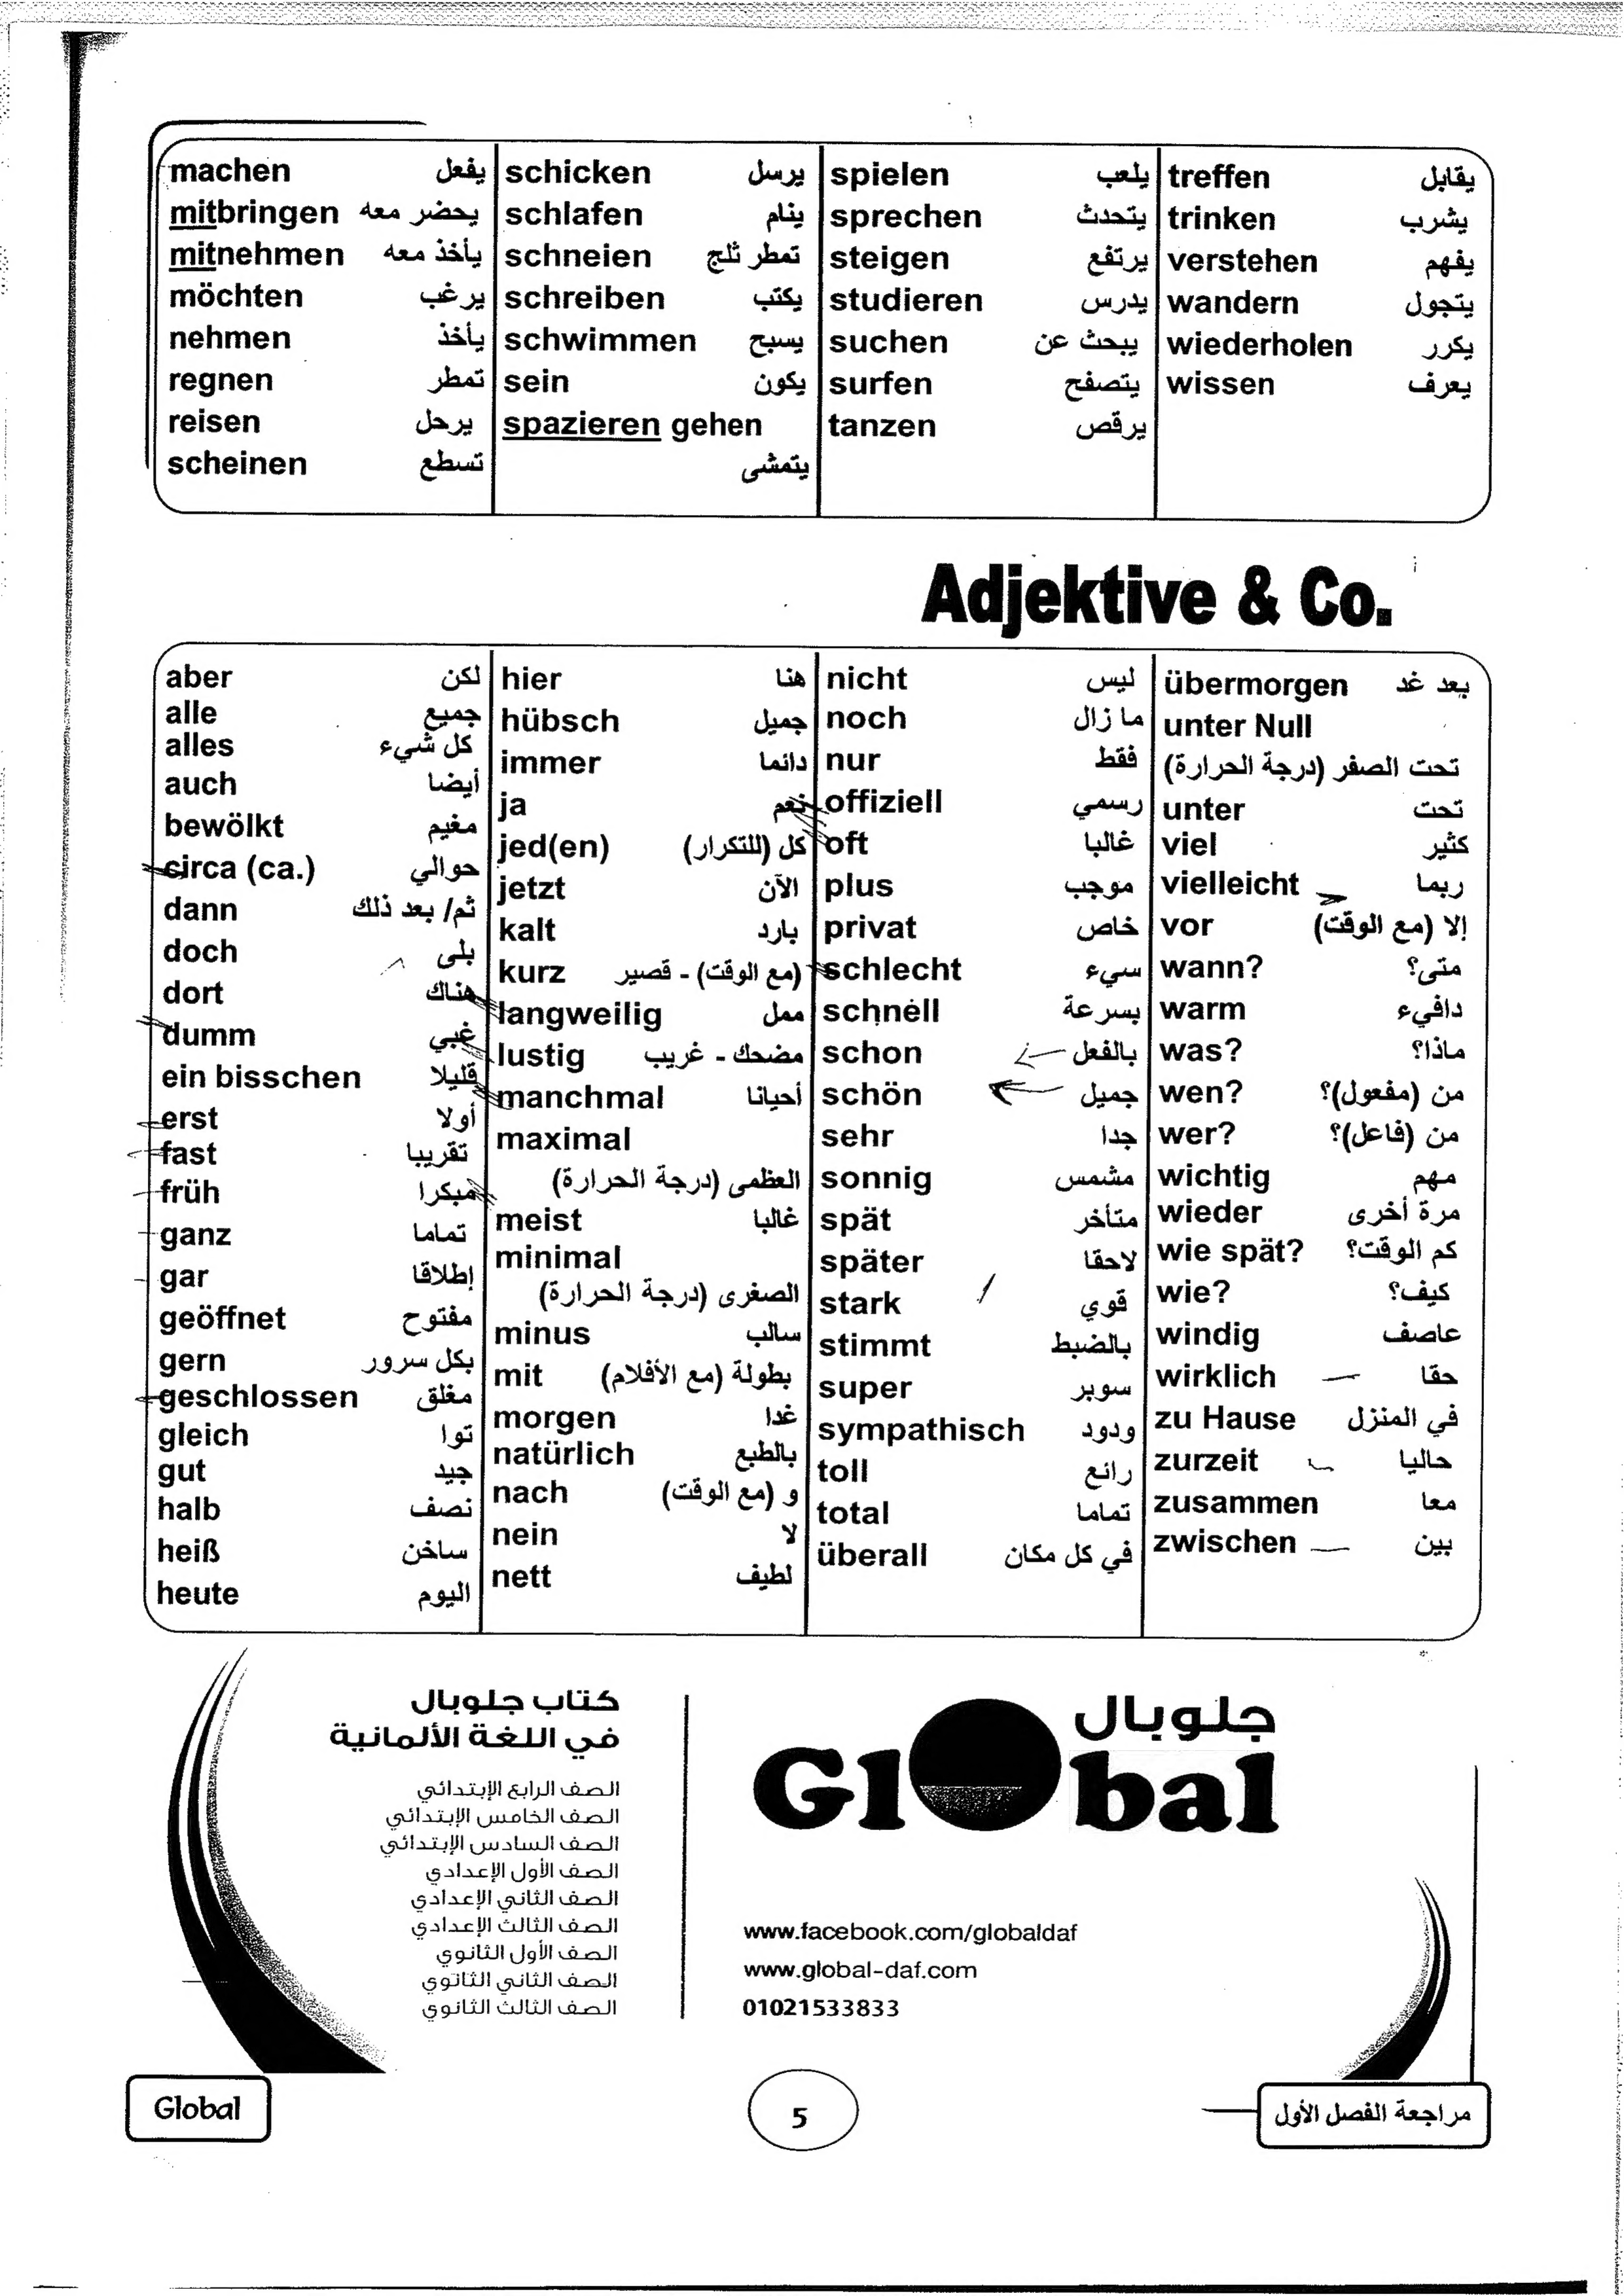 machen يفعل
mitbringen يحضر معه
mitnehmen يأخذ معه
möchten يرغب
nehmen يأخذ
regnen تمطر
reisen يرحل
scheinen تسطع
schicken يرسل
schlafen ينام
schneien تمطر ثلج
schreiben يكتب
schwimmen يسبح
sein يكون
spazieren gehen
يتمشى
spielen يلعب
sprechen يتحدث
steigen يرتفع
studieren يدرس
suchen يبحث عن
surfen يتصفح
tanzen يرقص
treffen يقابل
trinken يشرب
verstehen يفهم
wandern يتجول
wiederholen يكرر
wissen يعرف
Adjektive & Co.
aber لكن
alle جميع
alles كل شيء
auch أيضا
bewölkt مغيم
circa (ca.) حوالي
dann ثم/ بعد ذلك
doch بلى
dort هناك
dumm غبي
ein bisschen قليلا
erst أولا
fast تقريبا
früh مبكرا
ganz تماما
gar إطلاقا
geöffnet مفتوح
gern بكل سرور
geschlossen مغلق
gleich توا
gut جيد
halb نصف
heiß ساخن
heute اليوم
hier هنا
hübsch جميل
immer دائما
ja نعم
jed(en) كل (للتكرار)
jetzt الآن
kalt بارد
kurz (مع الوقت) - قصير
langweilig ممل
lustig مضحك - غريب
manchmal أحيانا
maximal
العظمى (درجة الحرارة)
meist غالبا
minimal
الصغرى (درجة الحرارة)
minus سالب
mit بطولة (مع الأفلام)
morgen غدا
natürlich بالطبع
nach و (مع الوقت)
nein لا
nett لطيف
nicht ليس
noch ما زال
nur فقط
offiziell رسمي
oft غالبا
plus موجب
privat خاص
schlecht سيء
schnell بسرعة
schon بالفعل
schön جميل
sehr جدا
sonnig مشمس
spät متأخر
später لاحقا
stark قوي
stimmt بالضبط
super سوبر
sympathisch ودود
toll رائع
total تماما
überall في كل مكان
übermorgen بعد غد
unter Null
تحت الصفر (درجة الحرارة)
unter تحت
viel كثير
vielleicht ربما
vor إلا (مع الوقت)
wann? متى؟
warm دافيء
was? ماذا؟
wen? من (مفعول)؟
wer? من (فاعل)؟
wichtig مهم
wieder مرة أخرى
wie spät? كم الوقت؟
wie? كيف؟
windig عاصف
wirklich حقا
zu Hause في المنزل
zurzeit حاليا
zusammen معا
zwischen بين
كتاب جلوبال
في اللغة الألمانية
الصف الرابع الإبتدائي
الصف الخامس الإبتدائي
الصف السادس الإبتدائي
الصف الأول الإعدادي
الصف الثاني الإعدادي
الصف الثالث الإعدادي
الصف الأول الثانوي
الصف الثاني الثانوي
الصف الثالث الثانوي
جلوبال
Global
www.facebook.com/globaldaf
www.global-daf.com
01021533833
Global
5
مراجعة الفصل الأول